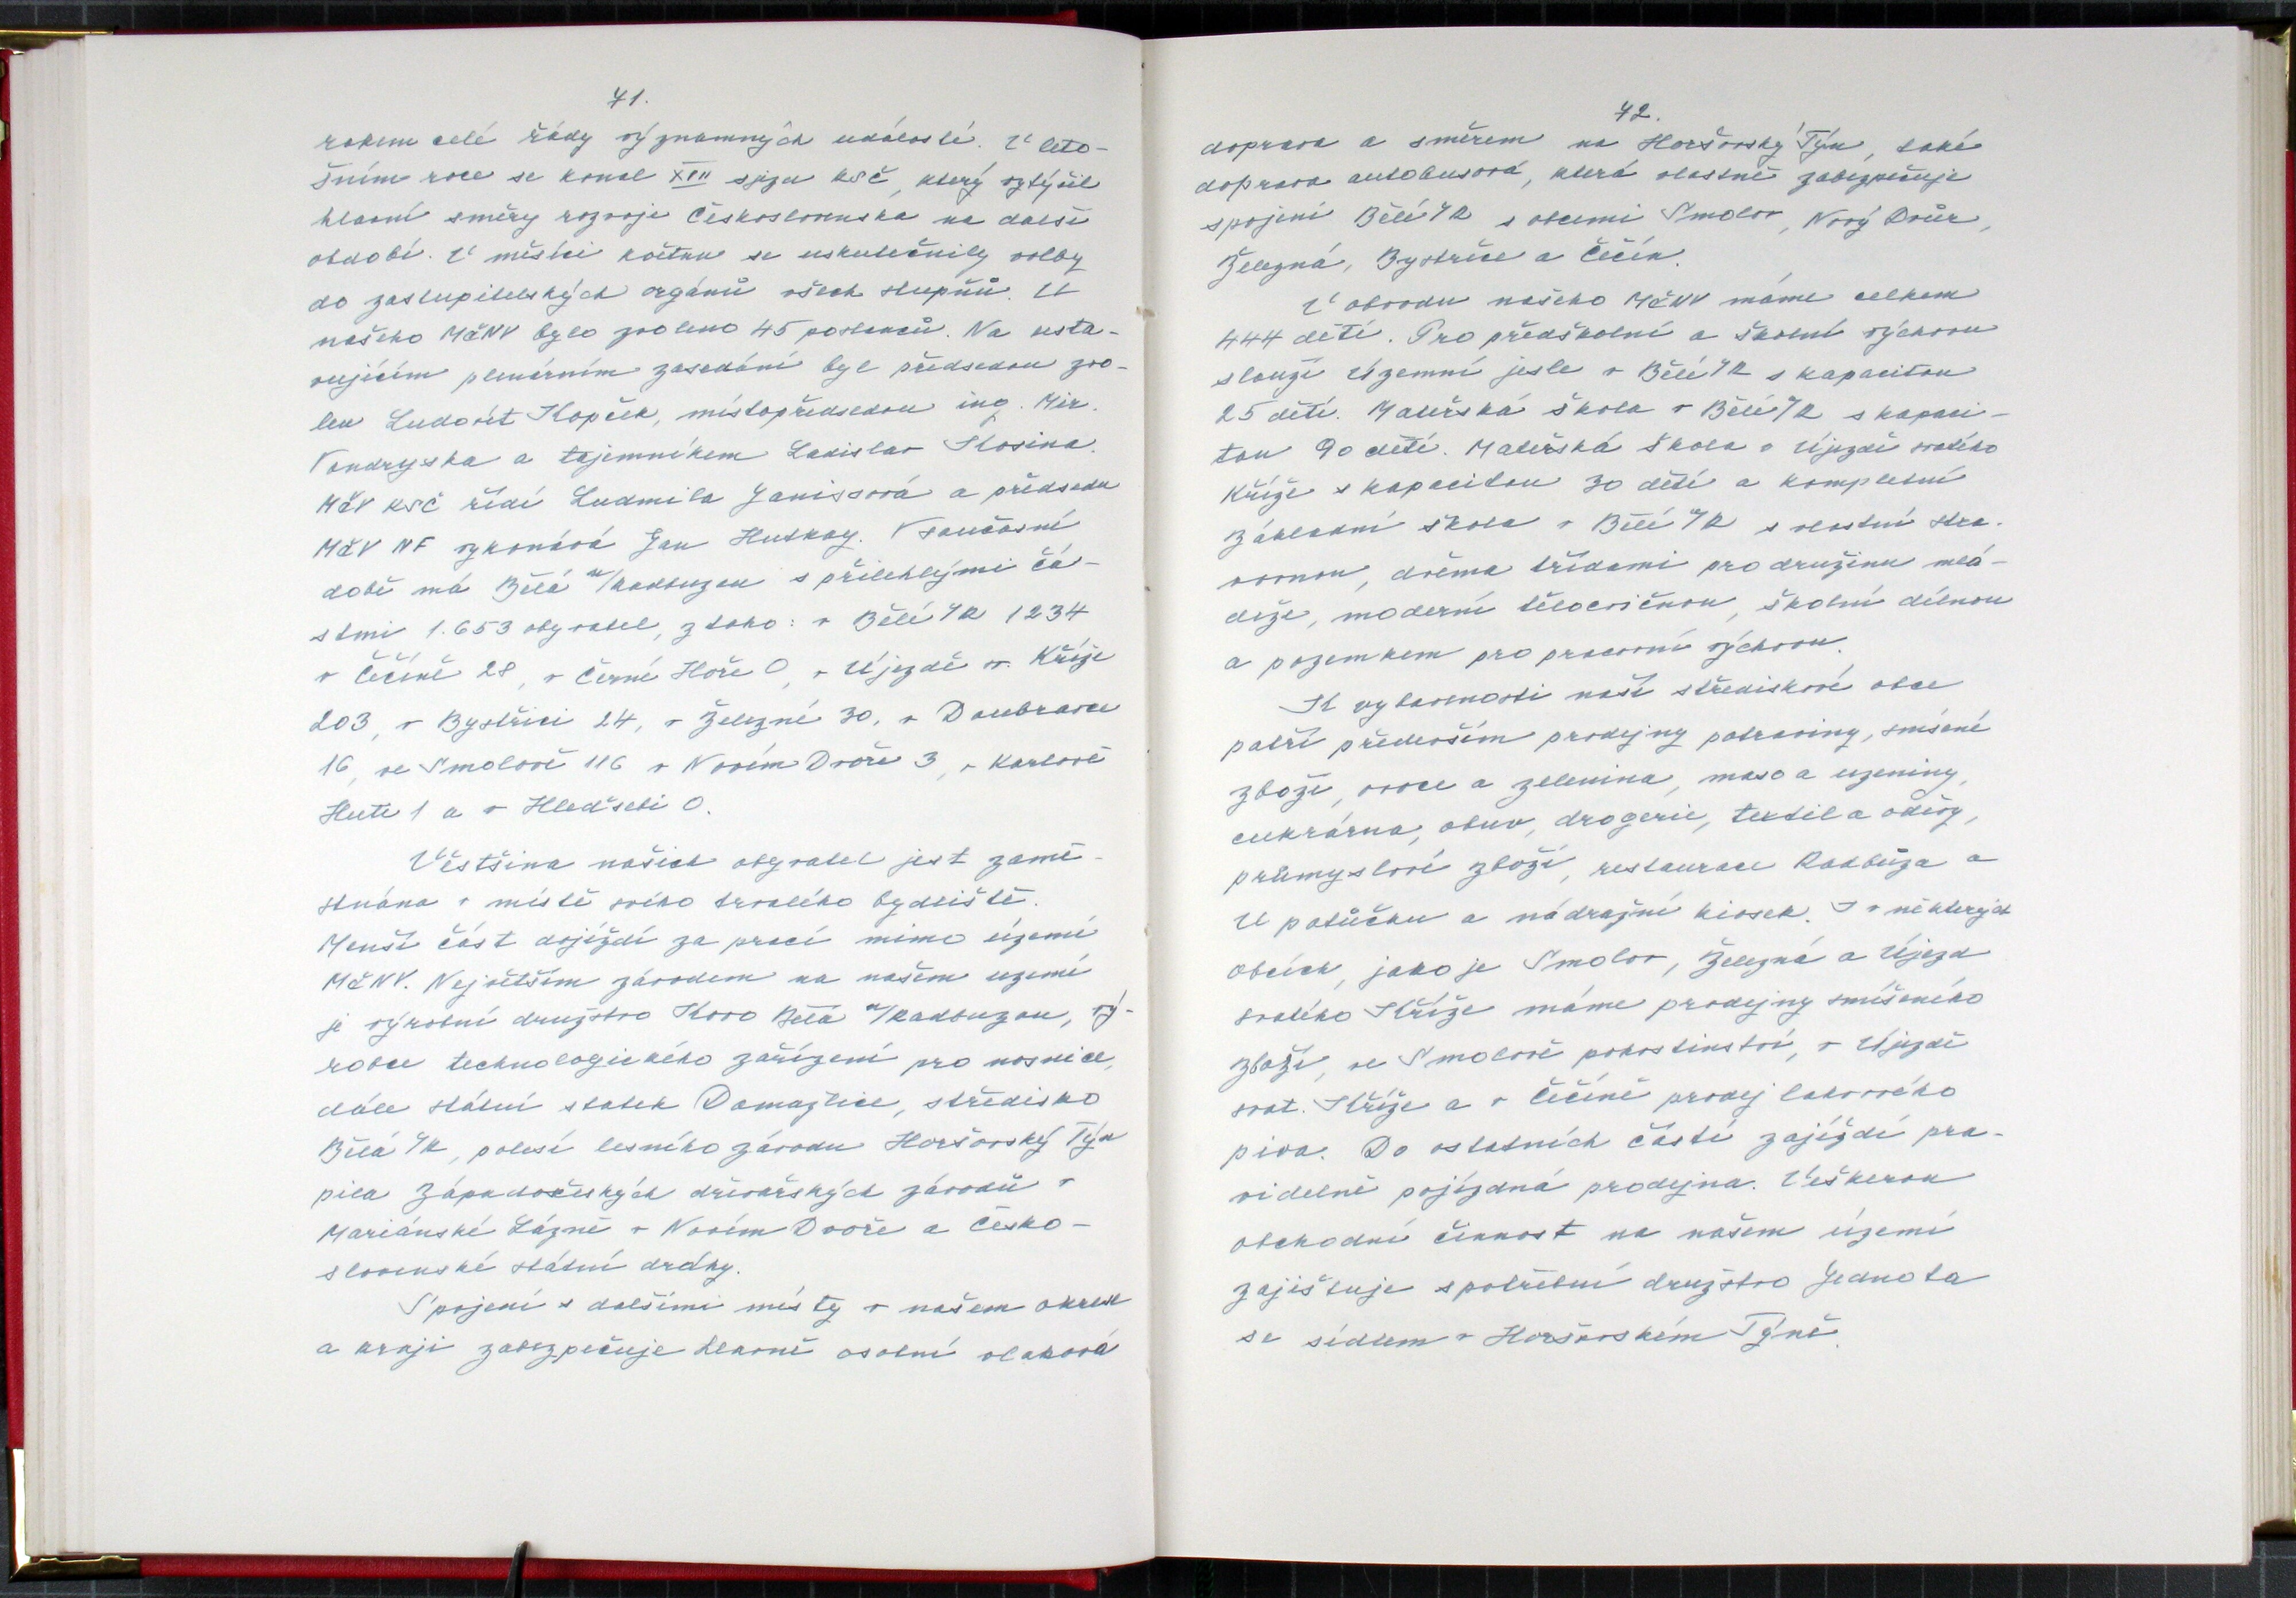 71.
rokem celé řády významných událostí. V leto-
šním roce se konal XVII sjezd KSČ, který vytýčil
hlavní směry rozvoje Československa na další
období. V měsíci květnu se uskutečnily volby
do zastupitelských orgánů všech stupňů. U
našeho MěNV bylo zvoleno 45 poslanců. Na usta-
vujícím plenárním zasedání byl předsedou zvo-
len Ludovít Kopček, místopředsedou ing. Mir.
Vondryska a tajemníkem Ladislav Kosina.
MěV KSČ řídí Ludmila Janissová a předsedu
MěV NF vykonává Jan Hutkay. V současné
době má Bělá n/Radbuzou s přilehlými čá-
stmi 1.653 obyvatel, z toho: v Bělé n/R 1234
v Čečíně 28, v Černé Hoře 0, v Újezdě sv. Kříže
203, v Bystřici 24, v Železné 30, v Doubravce
16, ve Smolově 116 v Novém Dvoře 3, v Karlově
Huti 1 a v Hleďsebi 0.
Většina našich obyvatel jest zamě-
stnána v místě svého trvalého bydliště.
Menší část dojíždí za prací mimo území
MěNV. Největším závodem na našem uzemí
je výrobní družstvo Kovo Bělá n/Radbuzou, vý-
robce technologického zařízení pro nosnice,
dále státní statek Domažlice, středisko
Bělá n/R, polesí lesního závodu Horšovský Týn
pila Západočeských dřevařských závodů v
Mariánské Lázně v Novém Dvoře a Česko-
slovenské státní dráhy.
Spojení s dalšími místy v našem okrese
a kraji zabezpečuje hlavně osobní vlaková
72.
doprava a směrem na Horšovský Týn, také
doprava autobusová, která vlastně zabezpečuje
spojení Bělé n/R s obcemi Smolov, Nový Dvůr,
Železná, Bystřice a Čečín.
V obvodu našeho MěNV máme celkem
444 dětí. Pro předškolní a školní výchovu
slouží Územní jesle v Bělé n/R s kapacitou
25 dětí. Mateřská škola v Bělé n/R s kapaci-
tou 90 dětí. Mateřská škola v Újezdě svatého
Kříže s kapacitou 30 dětí a kompletní
Základní škola v Bělé n/R s vlastní stra-
vovnou, dvěma třídami pro družinu mlá-
deže, moderní tělocvičnou, školní dílnou
a pozemkem pro pracovní výchovu.
K vybavenosti naší střediskové obce
patří především prodejny potraviny, smíšené
zboží, ovoce a zelenina, maso a uzeniny,
cukrárna, obuv, drogerie, textil a oděvy,
průmyslové zboží, restaurace Radbůza a
U potůčku a nádražní kiosek. I v některých
obcích, jako je Smolov, Železná a Újezd
svatého Kříže máme prodejny smíšeného
zboží, ve Smolově pohostinství, v Újezdě
svat. Kříže a v Čečíně prodej lahvového
piva. Do ostatních částí zajíždí pra-
videlně pojízdná prodejna. Veškerou
obchodní činnost na našem území
zajišťuje spotřební družstvo Jednota
se sídlem v Horšovském Týně.